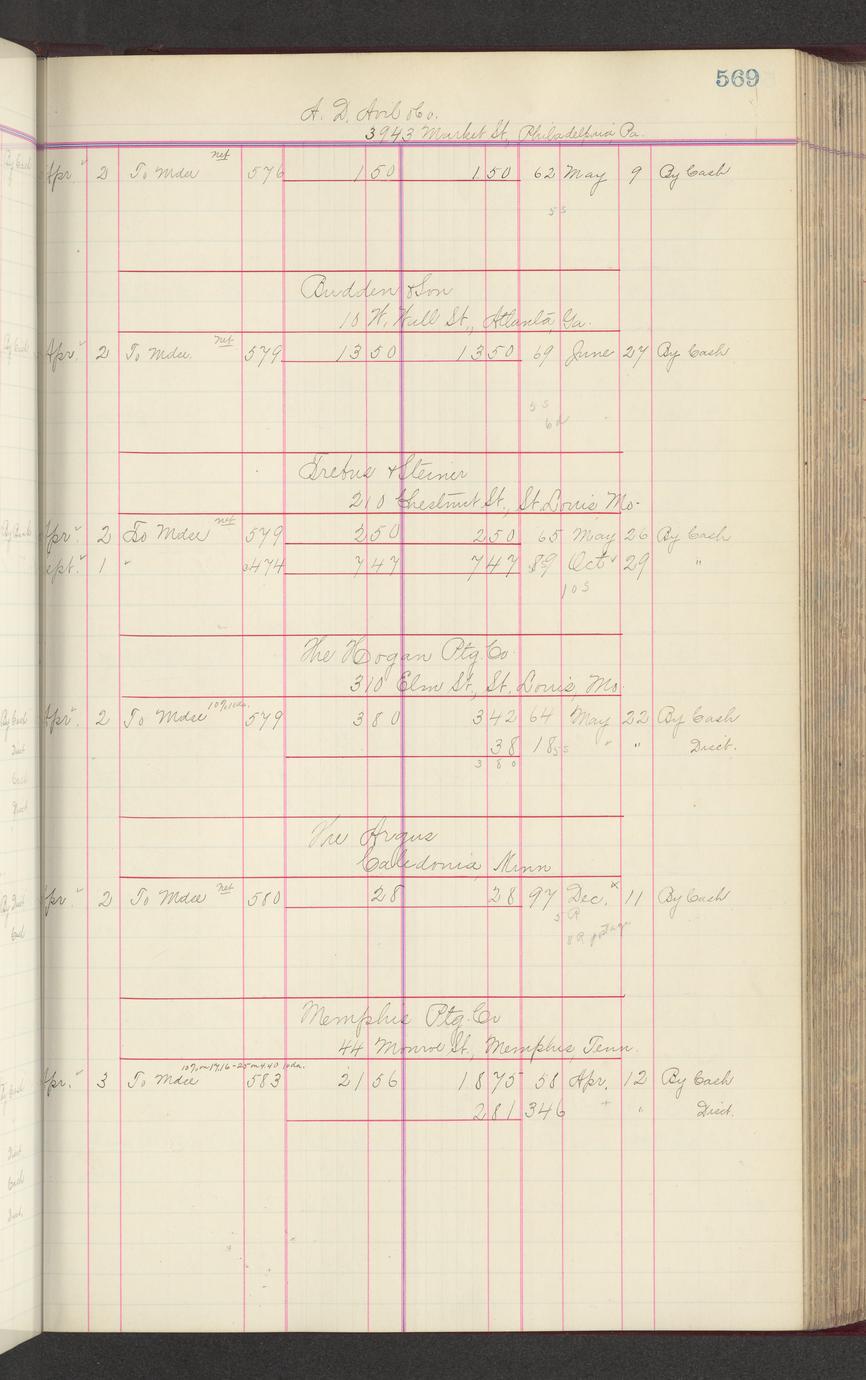 569
A. D. & Co.
3943 Market St., Philadelphia, Pa.
Apr. 2 To Mdse net 576 1 50 1 50 62 May 9 By Cash
5 S
Budden & Son
10 W. Wall St., Atlanta, Ga.
Apr. 2 To Mdse. net 579 13 50 13 50 69 June 27 By Cash
5 S
6 d
& Steiner
210 Chestnut St., St. Louis Mo.
Apr. 2 To Mdse net 579 2 50 2 50 65 May 26 By Cash
Sept. 1 " 474 7 47 7 47 89 Oct 29 "
10 S
The Hogan Ptg. Co.
310 Elm St., St. Louis, Mo.
Apr. 2 To Mdse 10% 10 da. 579 3 80 3 42 64 May 22 By Cash
38 18 5 S " " Disct.
3 8 0
The Argus
Caledonia, Minn
Apr. 2 To Mdse net 580 28 28 97 Dec. x 11 By Cash
5 R
8 R
Memphis Ptg. Co
44 Monroe St., Memphis, Tenn.
10% on 17.16 - 25 on 4.40 10 da.
Apr. 3 To Mdse 583 21 56 18 75 58 Apr. 12 By Cash
2 81 346 " " Disct.